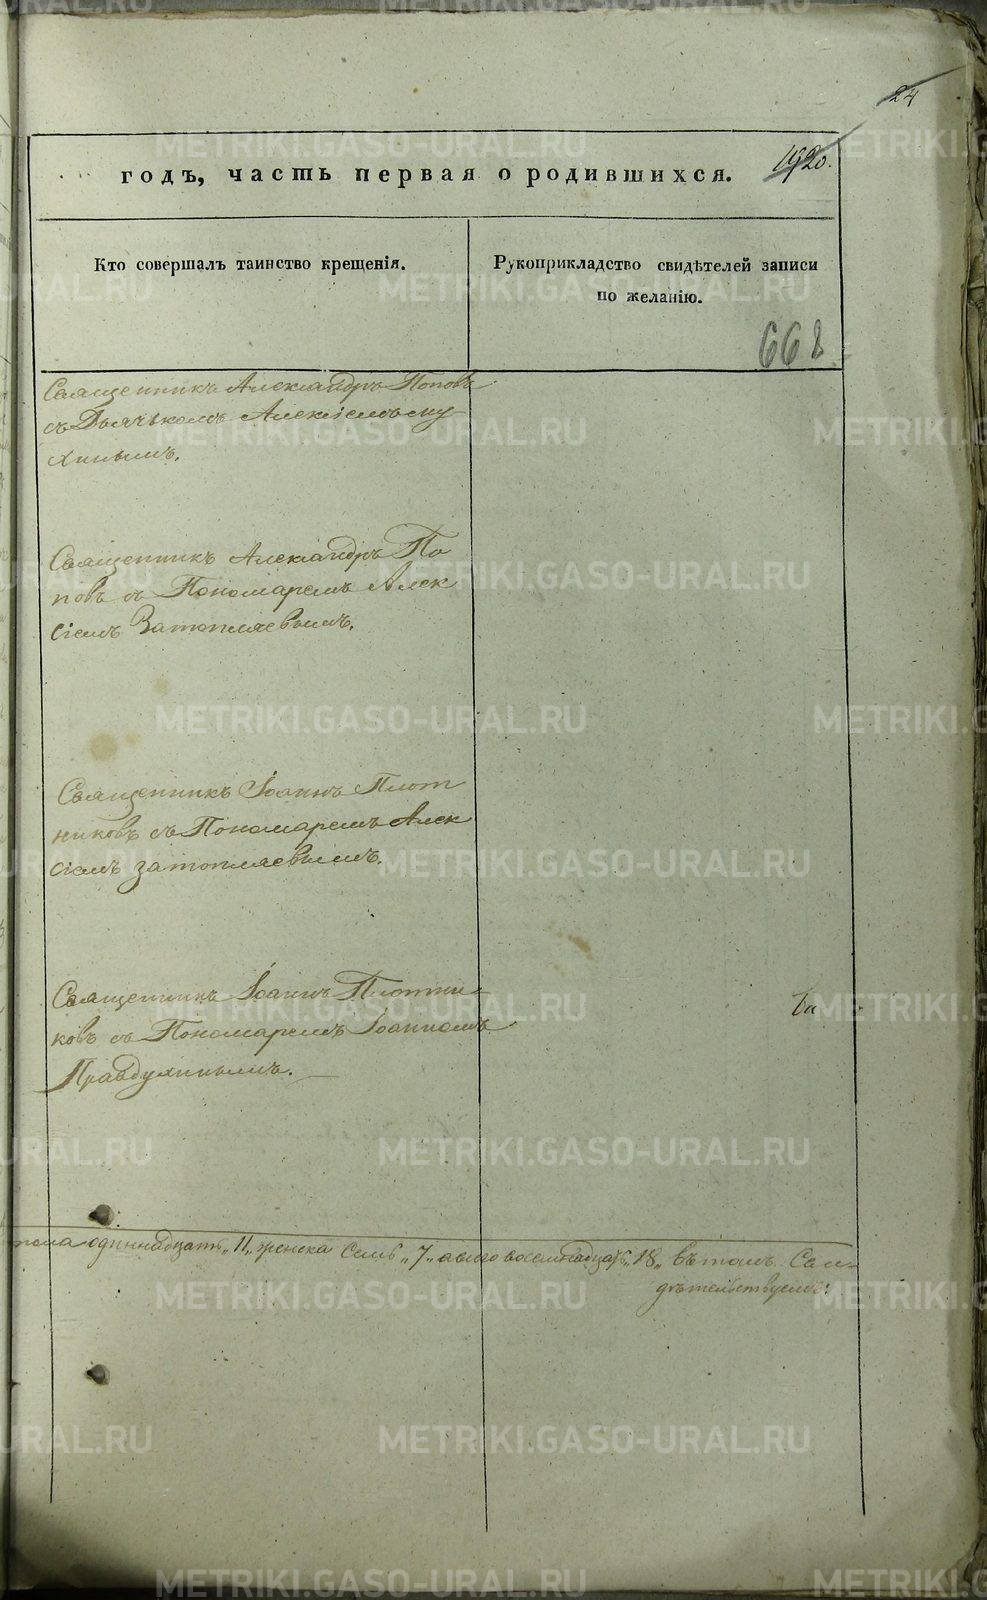 24
1920.
годъ, часть первая о родившихся.
Кто совершалъ таинство крещенія.
Рукоприкладство свидѣтелей записи
по желанію.
668
Священникъ Александръ Поповъ
съ Дьячькомъ Алексіемъ
хинымъ.
Священникъ Александръ По
повъ съ Пономаремъ Алек
сіемъ Затопляевымъ.
Священникъ Іоаннъ Плот
никовъ съ Пономаремъ Алек
сіемъ Затопляевымъ.
Священникъ Іоаннъ Плотни-
ковъ съ Пономаремъ Іоанномъ
Правдухинымъ.
пола одиннадцать „11„ женска семь „7„ а всего восемнадцать „18„ въ томъ Сви-
дѣтельствуемъ:
METRIKI.GASO-URAL.RU